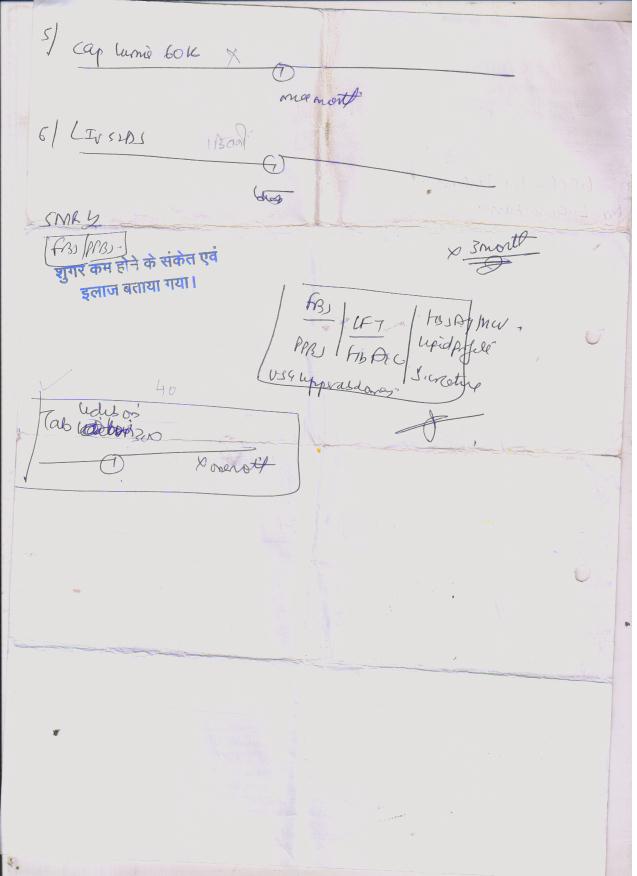 5/ Cap Lumia 60K X
1
once month
6/ LIV 52 DS
1
SMR
FBS/PPBS
शुगर कम होने के संकेत एवं
इलाज बताया गया।
x 3 month
FBS
LFT
HBsAg/HCV
PPBS
HbA1C
Lipid profile
USG Upper abdomen
S. creatine
40
Tab
300
1
x month